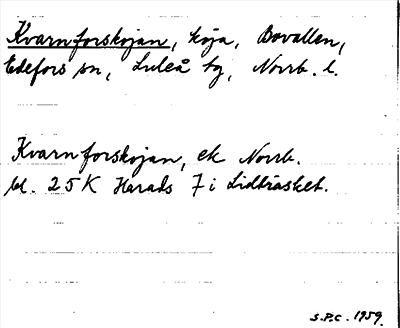 Kvarnforskojan, koja, Bovallen,
Edefors sn, Luleå tg, Norrb. l.
Kvarnforskojan, ek Norrb.
bl. 25K Harads 7 i Lidträsket.
S.P.C. 1959.